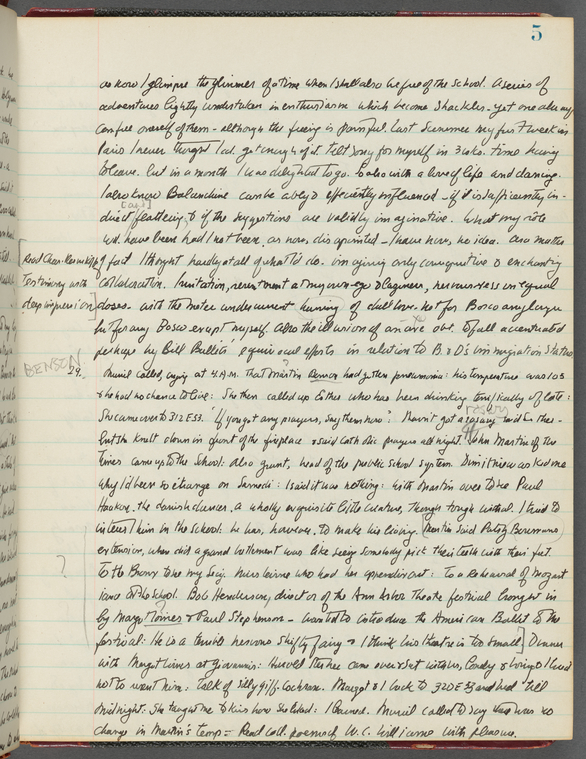 5
as now I glimpse the glimmer of a time when I shall also be free of the School. A series of
adventures lightly undertaken in enthusiasm which become shackles - yet one always
can free oneself of them - although the freeing is painful. Last Summer my first week in
Paris I never thought I'd get enough of it. Felt sorry for myself in 3 wks. time having
to leave. but in a month I was delighted to go. So also with a love of life and dancing.
I also know Balanchine can be ably & efficiently influenced - if it is sufficiently in-
[ap]
direct flattering & if the suggestions are validly imaginative. What my role
wd. have been had I not been, as now, disappointed - I have now, no idea. As a matter
of fact I thought hardly at all of what I'd do. imagining only cooperative & enchanting
[Read Chas.
testimony with
deep impression]
collaboration. Irritation, resentment at my own ego & eagerness, nervousness in equal
doses. with the under undercurrent of dull love. not for
but for any except myself. Also the illusion of an over. Of all accentuated
perhaps by Bill Bullitt's equivocal efforts in relation to B. & D's immigration status
BENSON
29.
Muriel called, crying at 4. A.M. that Martin Benson had gotten pneumonia: his temperature was 103
& he had no chance to live: She then called up Esther who has been drinking terrifically of late:
She came over to 312 E 53. "If you got any prayers, say them now": Haven't got a rosary said Esther -
rosary
but she knelt down in front of the fireplace & said Catholic prayers all night. John Martin of the
Times came up to the School: also Grant, head of the public school system. Dimitriew asked me
why I'd been so strange on Sunday: I said it was nothing: with Martin over to see Paul
Haakon. the danish dancer, a wholly exquisite little creature, though tough withal. I tried to
interest him in the school: he has, however, to make his living. (Martin said
extension, when did a grand battement was like seeing somebody pick their teeth with their feet.
?
To the Bronx to see my Miss who had her appendix out: To a Rehearsal of Mozart
dance @ the school. Bob Henderson, director of the Ann Arbor Theatre festival brought in
by Margot & Paul Stephenson - wanted to introduce the American Ballet to the
festival: He is a terrible nervous shifty fairy & I think his theatre is too small] Dinner
with Margot at Giovanni's: Harold came over & sat with us, & I
not to want him: talk of silly Giff. Cochrane. Margot & I back to 320 E 53 and bed till
midnight. She taught me to kiss how she liked: I learned. Muriel called to say there was no
change in Martin's temp:- Read coll. poems of W.C. Williams with pleasure.